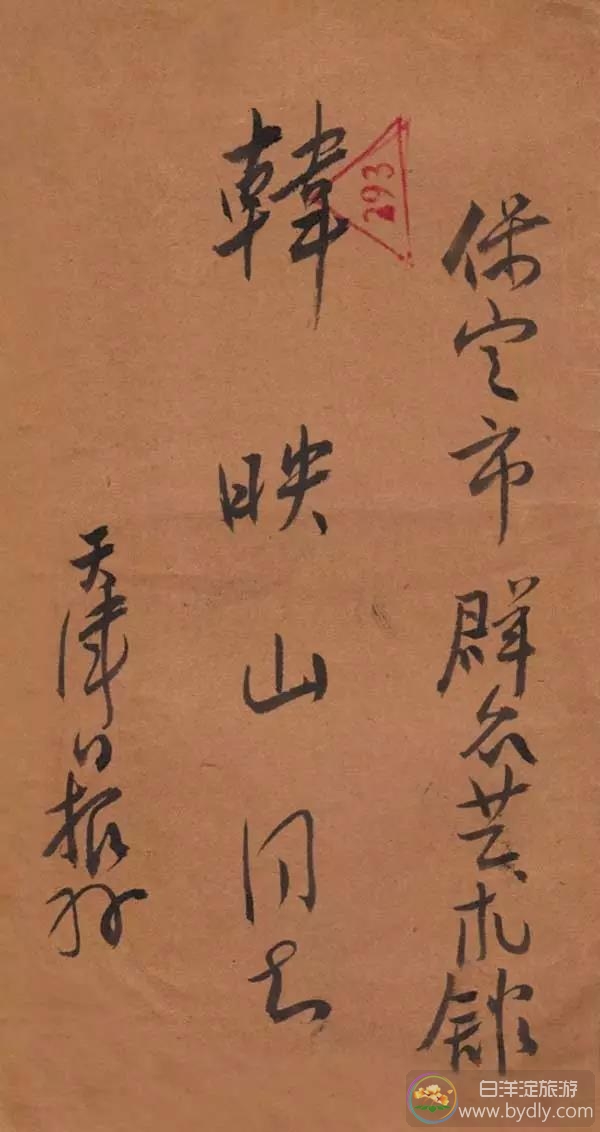 保定市群众艺术馆
韩映山同志
天津日报孙
293
白洋淀旅游
www.bydly.com